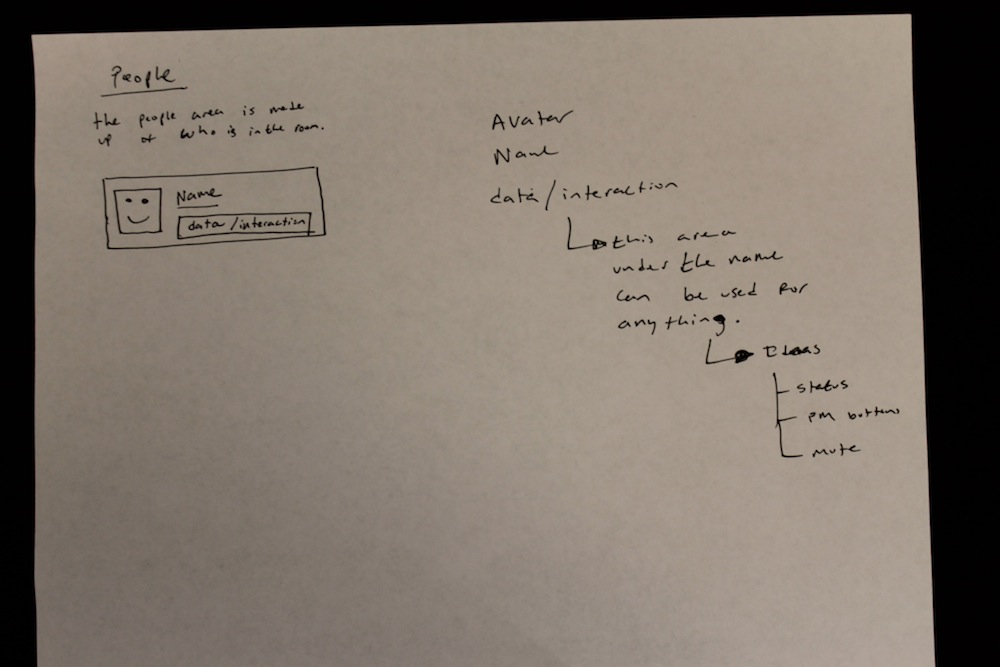 People
the people area is made
up of who is in the room.
Name
data/interaction
Avatar
Name
data/interaction
this area
under the name
can be used for
anything.
Ideas
status
PM buttons
mute